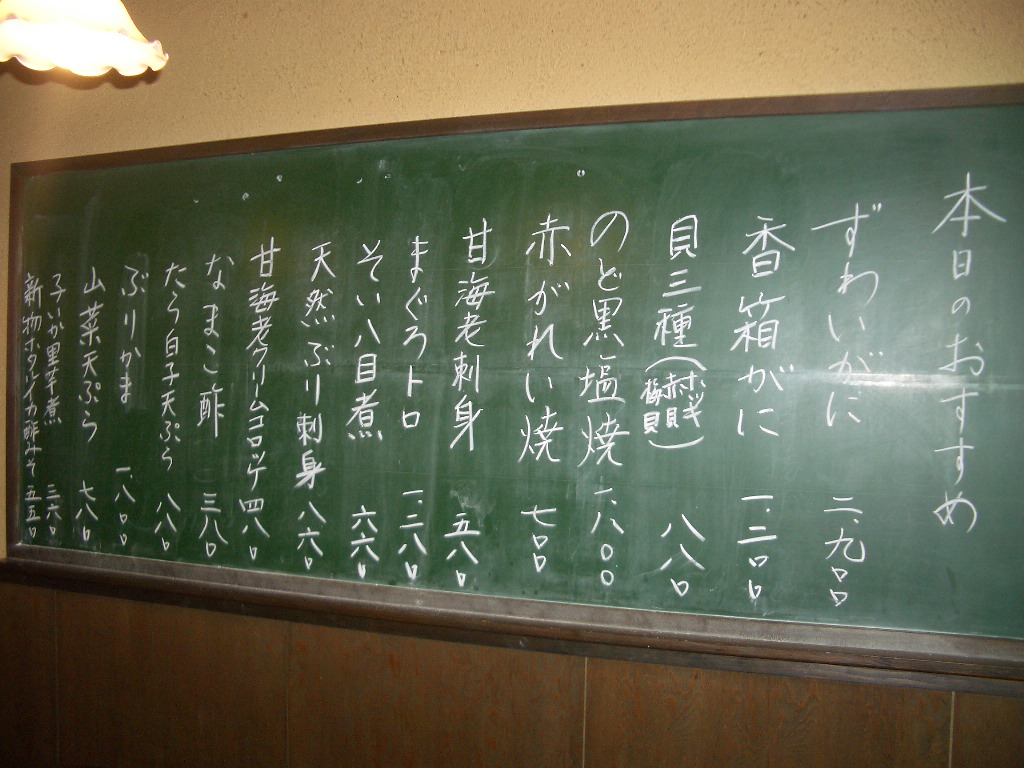 本日のおすすめ
ずわいがに 二、九〇〇
香箱がに 一、二〇〇
貝三種(赤貝 梅貝)八八〇
のど黒塩焼 一、八〇〇
赤がれい焼 七〇〇
甘海老刺身 五八〇
まぐろトロ 一、二八〇
そい八目煮 六六〇
天然ぶり刺身 八六〇
甘海老クリームコロッケ 四八〇
なまこ酢 三八〇
たら白子天ぷら 八八〇
ぶりかま 一、八〇〇
山菜天ぷら 七八〇
子いか里芋煮 三六〇
新物ホタルイカ酢みそ 五五〇